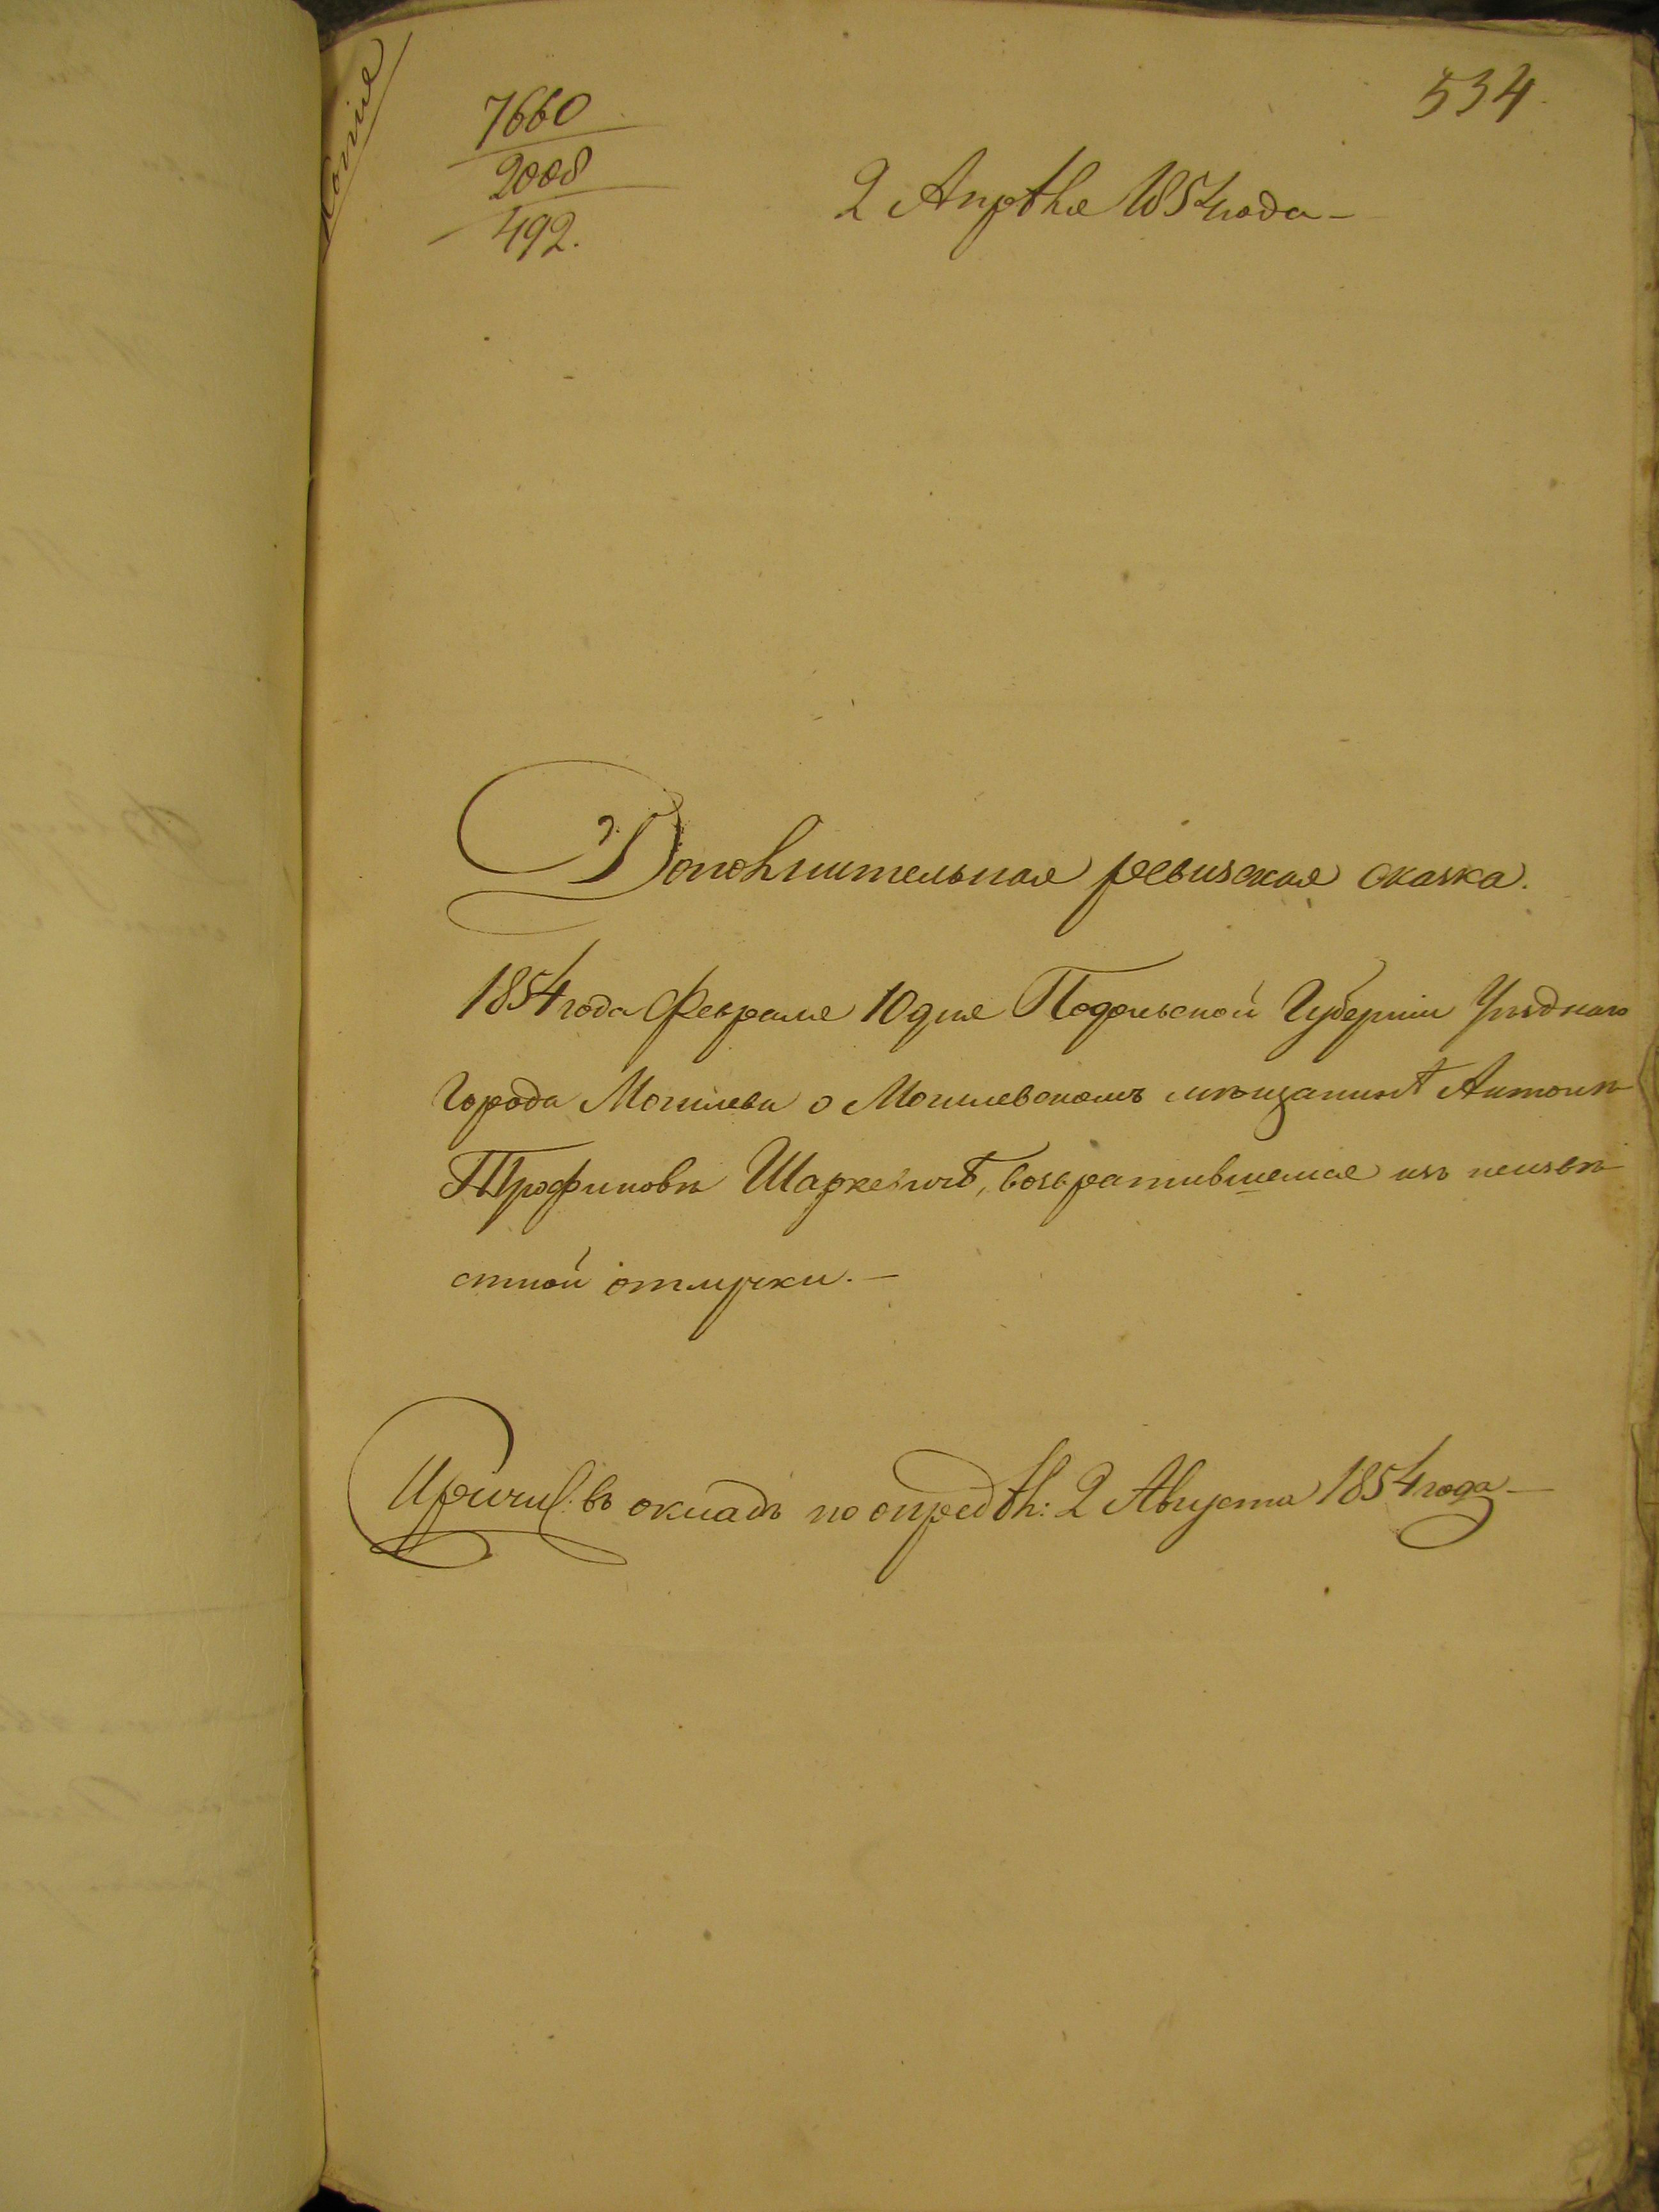 Копія
534
7660
2008
492.
2 Апрѣля 1854 года —
Дополнительная ревизская сказка.
1854 года Февраля 10 дня Подольской Губерніи Уѣзднаго
города Могилева о Могилевскомъ мѣщанинѣ Антонѣ
Трофимовѣ Шаркевичѣ, возвратившемся изъ неизвѣ
стной отлучки. —
Причисл: въ окладъ по опредѣл: 2 Августа 1854 года —